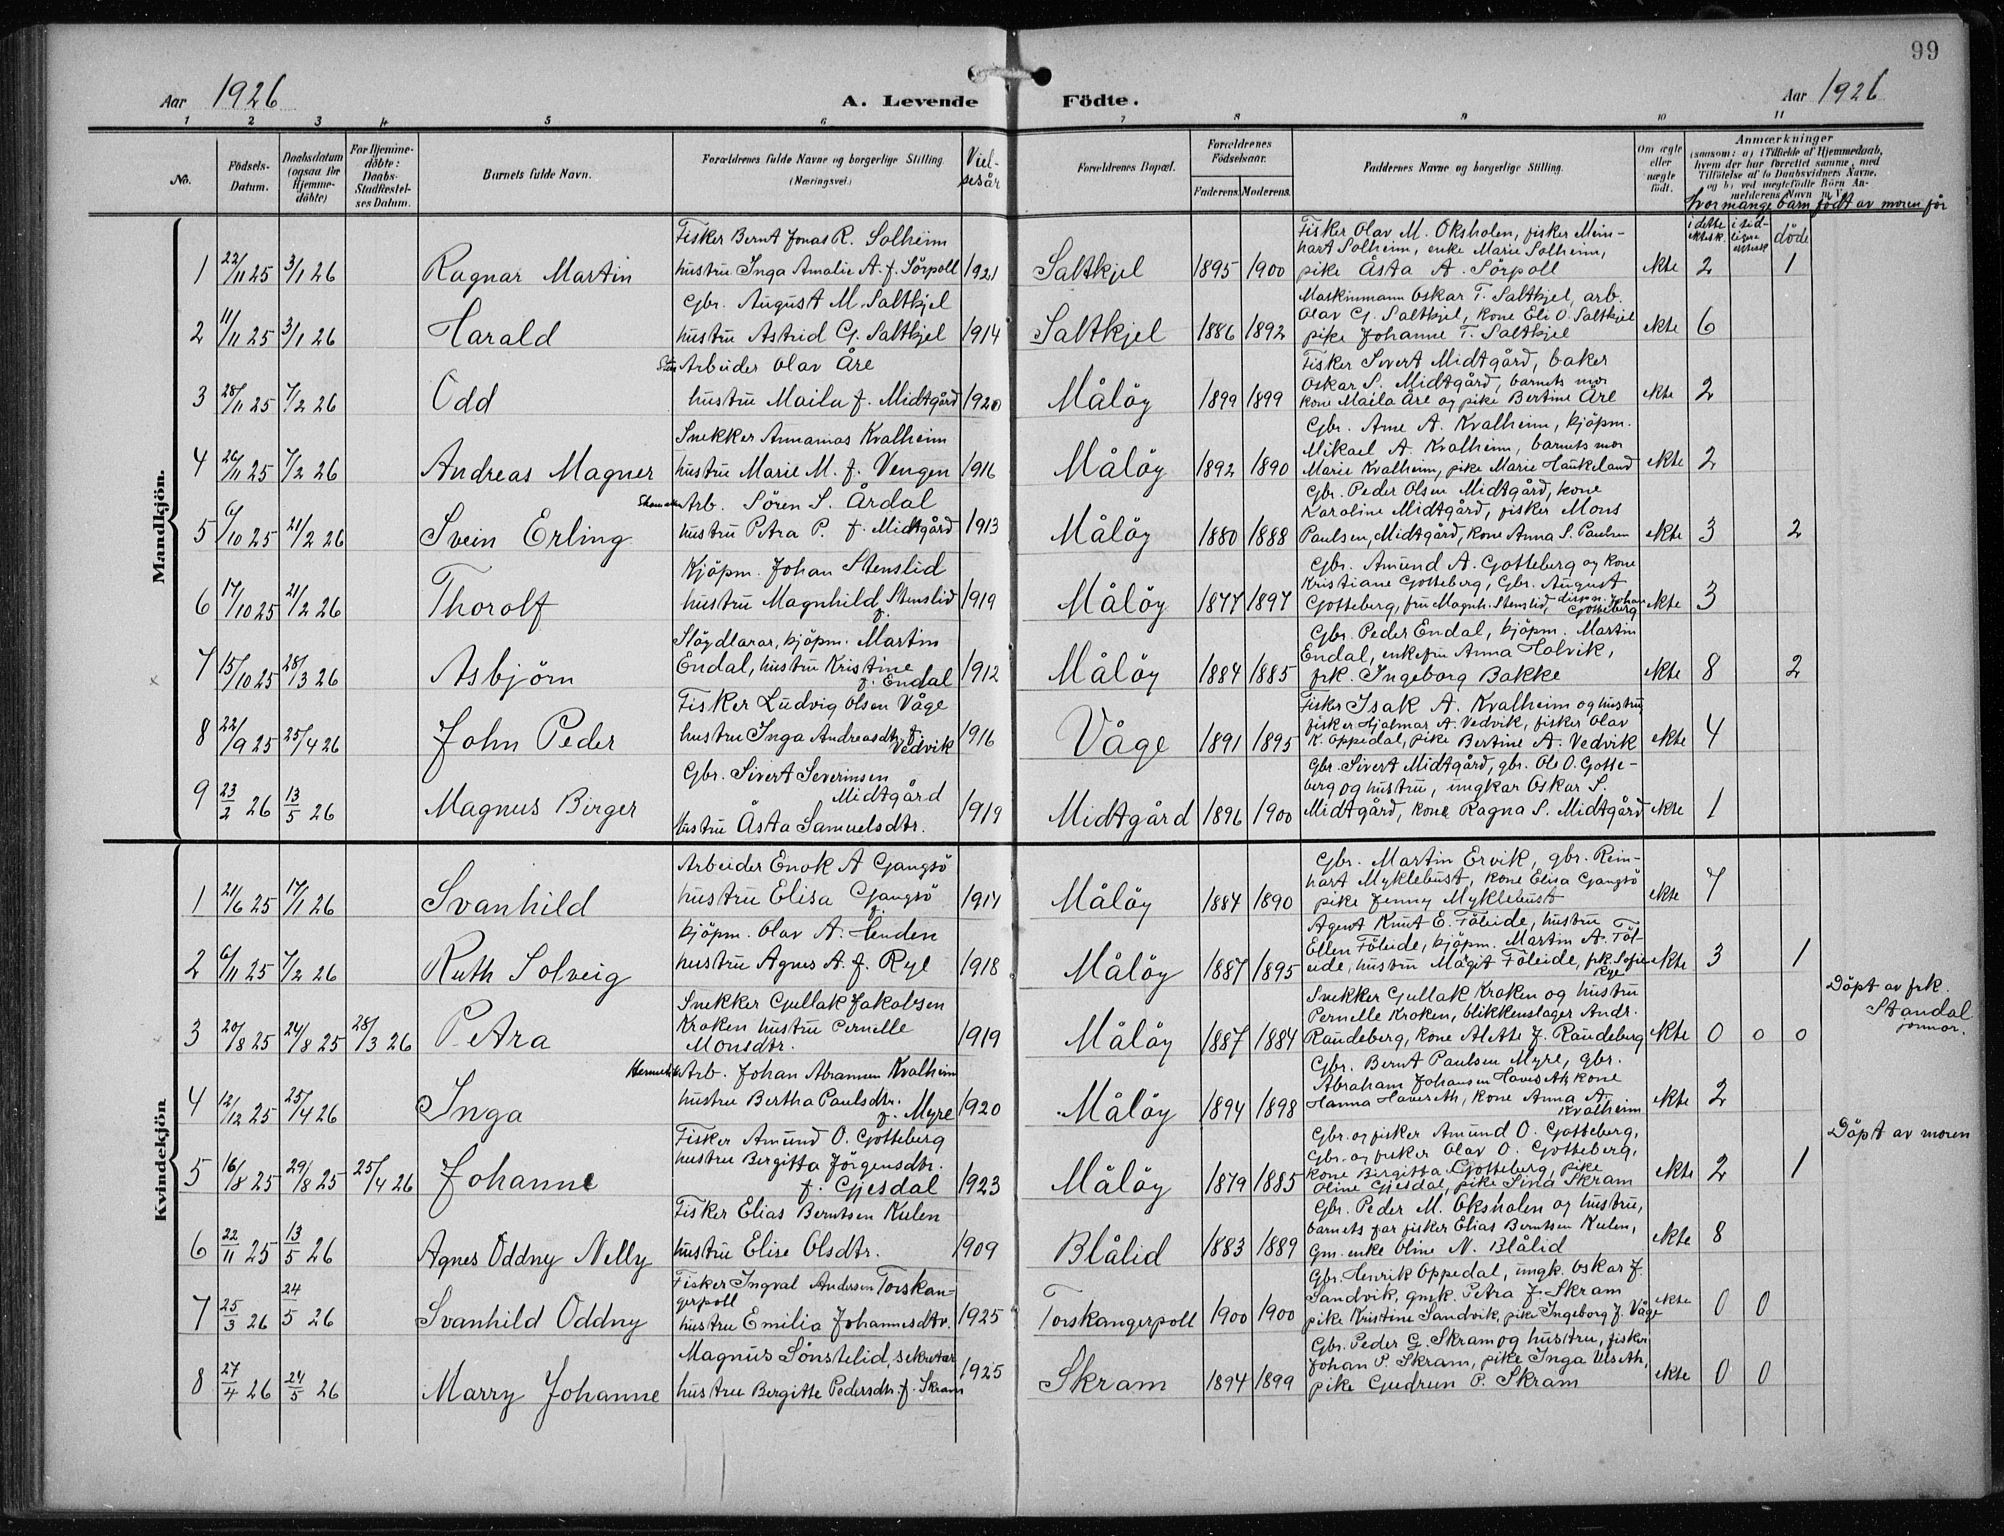 99
Aar 1926
A. Levende Födte.
Aar 1926
1 2 3 4 5 6 7 8 9 10 11
No.
Födsels-Datum.
Daabsdatum (ogsaa for Hjemmedöbte)
For Hjemmedöbte: Daabs-Stadfæstelses Datum.
Barnets fulde Navn.
Forældrenes fulde Navne og borgerlige Stilling. (Næringsvei.)
Vielsesår
Forældrenes Bopæl.
Forældrenes Födselsaar.
Faderens. Moderens.
Faddernes Navne og borgerlige Stilling.
Om ægte eller uægte födt.
Anmærkninger
(saasom: a) i Tilfælde af Hjemmedaab, hvem der har forrettet samme, med Tilföielse af to Daabsvidners Navne, og b) ved uægtefödte Börn Anmelderens Navn m. V.
Hvor mange barn födt av moren för
i dette ektesk. i tidligere ektesk döde
Mandkjön.
Fisker Bernt Jonas R. Solheim
Fisker Olav M. Oksholen, fisker Mein-
hart Solheim, enke Marie Solheim,
1 22/11 25 3/1 26 Ragnar Martin hustru Inga Amalie A. f. Sörpoll 1921 Saltkjel 1895 1900 pike Åsta A. Sörpoll ekte 2 1
Gbr. August M. Saltkjel
Maskinmann Oskar T. Saltkjel, arb.
Olav G. Saltkjel, kone Eli O. Saltkjel
2 11/11 25 3/1 26 Harald hustru Astrid G. Saltkjel 1914 Saltkjel 1886 1892 pike Johanne T. Saltkjel ekte 6
Arbeider Olav Åre
Fisker Sivert Midtgård, baker
Oskar S. Midtgård, barnets mor
3 28/11 25 7/2 26 Odd hustru Maila f. Midtgård 1920 Målöy 1899 1899 kone Maila Åre og pike Bertine Åre ekte 2
Snekker Annanias Kvalheim
Gbr. Arne A. Kvalheim, kjöpm.
Mikael A. Kvalheim, barnets mor
4 26/11 25 7/2 26 Andreas Magner hustru Marie M. f. Vengen 1916 Målöy 1892 1890 Marie Kvalheim, pike Marie Haukeland ekte 2
Arb. Sören S. Årdal
Gbr. Peder Olsen Midtgård, kone
Karoline Midtgård, fisker Mons
5 6/10 25 21/2 26 Svein Erling hustru Petra P. f. Midtgård 1913 Målöy 1880 1888 Paulsen, Midtgård, kone Anna S. Paulsen ekte 3 2
Kjöpm. Johan Stenslid
Gbr. Amund A. Gotteberg og kone
Kristiane Gotteberg, Gbr. August
6 17/10 25 21/2 26 Thorolf hustru Magnhild f. Stenslid 1919 Målöy 1877 1897 Gotteberg, fru Magnh. Stenslid, dispon. Johan Gotteberg ekte 3
Slöydlærar, kjöpm. Martin
Gbr. Peder Endal, kjöpm. Martin
Endal, enkefru Anna Holvik,
7 15/10 25 28/3 26 Asbjörn Endal, hustru Kristine f. Endal 1912 Målöy 1884 1885 frk. Ingeborg Bakke ekte 8 2
Fisker Ludvig Olsen Våge
Fisker Isak A. Kvalheim og hustru
fisker Hjalmar A. Vedvik, fisker Olav
8 22/9 25 25/4 26 John Peder hustru Inga Andreasdtr. f. Vedvik 1916 Våge 1891 1895 K. Oppedal, pike Bertine A. Vedvik ekte 4
Gbr. Sivert Severinsen Midtgård
Gbr. Sivert Midtgård, gbr. Ole O. Gotte-
berg og hustru, ungkar Oskar S.
9 23/2 26 13/5 26 Magnus Birger hustru Åsta Samuelsdtr. 1919 Midtgård 1896 1900 Midtgård, kone Ragna S. Midtgård ekte 1
Kvindekjön
Arbeider Enok A Gangsö
Gbr. Martin Ervik, gbr. Rein-
hart Myklebust, kone Elisa Gangsö
1 21/6 25 17/1 26 Svanhild hustru Elisa f. Gangsö 1911 Målöy 1884 1890 pike Jenny Myklebust ekte 7
kjöpm. Olav A. Henden
Agent Knut E. Föleide, hustru
Ellen Föleide, kjöpm. Martin A. Föl-
2 6/11 25 7/2 26 Ruth Solveig hustru Agnes A. f. Rye 1918 Målöy 1887 1895 eide, hustru Magit Föleide, frk. Sofie Rye ekte 3 1
Snekker Gullak Jakobsen
Snekker Gullak Kroken og hustru
Pernelle Kroken, blikkenslager Andr.
3 20/8 25 24/8 25 28/3 26 Petra Kroken hustru Pernelle Monsdtr. 1919 Målöy 1887 1884 Raudeberg, kone Alette J. Raudeberg ekte 0 0 0 Döpt av frk. Standal
Arb. Johan Abramsen Kvalheim
Gbr. Bernt Paulsen Myre, gbr.
Abraham Johansen Haveseth, kone
4 12/12 25 25/4 26 Inga hustru Bertha Paulsdtr. f. Myre 1920 Målöy 1894 1898 Hanna Haveseth, kone Anna A. Kvalheim ekte 2
Fisker Amund O. Gotteberg
Gbr. og fisker Amund O. Gotteberg,
Gbr. og fisker Olav O. Gotteberg,
kone Birgitta Gotteberg, pike
5 16/8 25 29/8 25 25/4 26 Johanne hustru Birgitta Jörgensdtr. f. Gjesdal 1923 Målöy 1879 1885 Oline Gjesdal, pike Sina Skram ekte 2 1 Döpt av moren
Fisker Elias Berntsen Kulen
Gbr. Peder M. Oksholen og hustru,
barnets far fisker Elias Berntsen Kulen,
6 22/11 25 13/5 26 Agnes Oddny Nelly hustru Elise Olsdtr. 1909 Blålid 1883 1889 Gm. enke Oline N. Blålid ekte 8
Fisker Ingval Andersen Torskan-
gerpoll
Gbr. Henrik Oppedal, ungk. Oskar J.
Sandvik, gmk. Petra J. Skram
7 25/3 26 24/5 26 Svanhild Oddny hustru Emilia Johannesdtr. 1925 Torskangerpoll 1900 1900 pike Kristine Sandvik, pike Ingeborg J. Våge ekte 0 0
Magnus Sönstelid, sekretær
Gbr. Peder G. Skram og hustru, fisker
Johan P. Skram, pike Inga Ulseth,
8 27/4 26 24/5 26 Marry Johanne hustru Bergitte Pedersdtr. f. Skram 1925 Skram 1894 1899 pike Gudrun P. Skram ekte 0 0